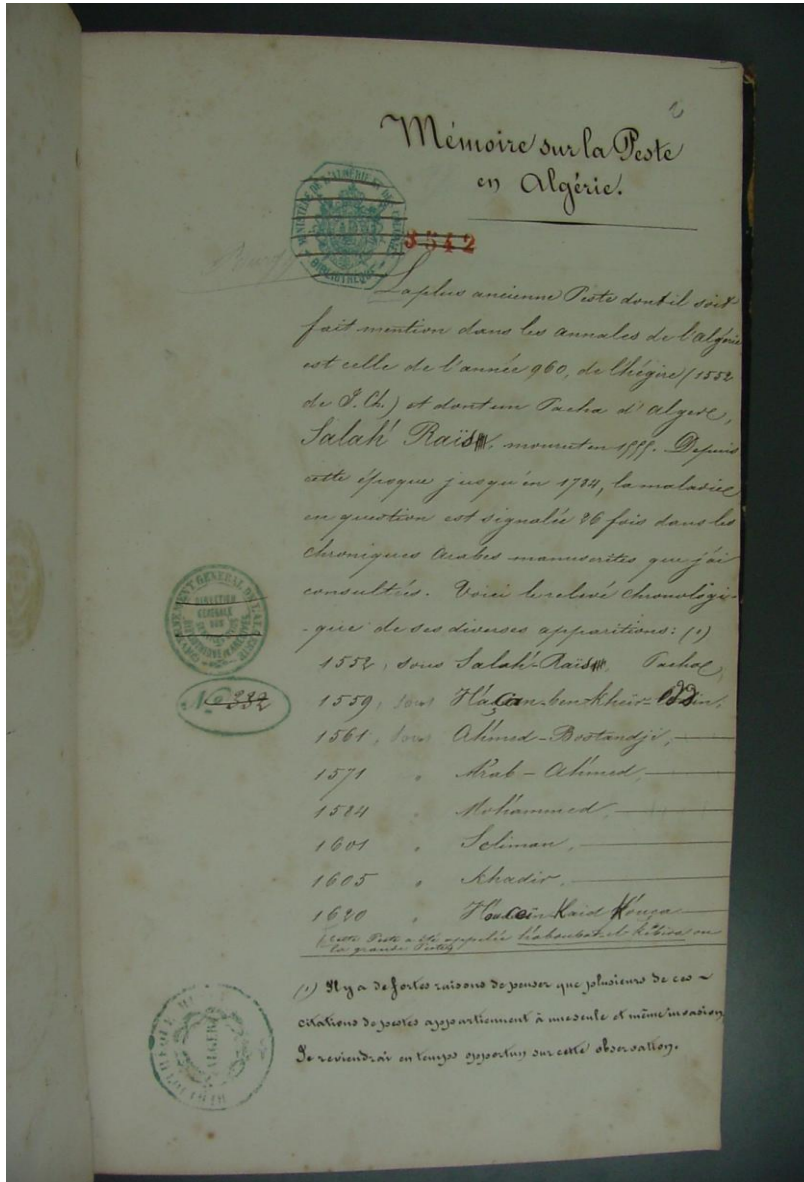 2
Mémoire sur la Peste
en Algérie.
MINISTÈRE DE L'ALGÉRIE ET DES COLONIES
BIBLIOTHÈQUE
3542
La plus ancienne Peste dont il soit
fait mention dans les annales de l'Algérie
est celle de l'année 960, de l'hégire (1552
de J. Ch.) et dont un Pacha d'Alger,
Salah' Raïs, mourut en 1555. Depuis
cette époque jusqu'en 1784, la maladie
en question est signalée 26 fois dans les
chroniques Arabes manuscrites que j'ai
consultées. Voici le relevé chronologi-
-que de ses diverses apparitions: (1)
GOUVERNEMENT GÉNÉRAL DE L'ALGÉRIE
DIRECTION
GÉNÉRALE
1552, sous Salah'-Raïs, Pacha,
No 332
1559, sous H'açan-ben-Kheïr-Eddin,
1561, sous Ahmed-Bostandji,
1571 " A'rab-Ahmed,
1584 " Mohammed,
1601 " Soliman,
1605 " Khadir,
1620 " Kaïd
(Cette Peste a été appelée el Kebira ou
la grande Peste)
(1) Il y a de fortes raisons de penser que plusieurs de ces
citations de pestes appartiennent à une seule et même invasion,
Je reviendrai en temps opportun sur cette observation.
BIBLIOTHÈQUE
ALGER